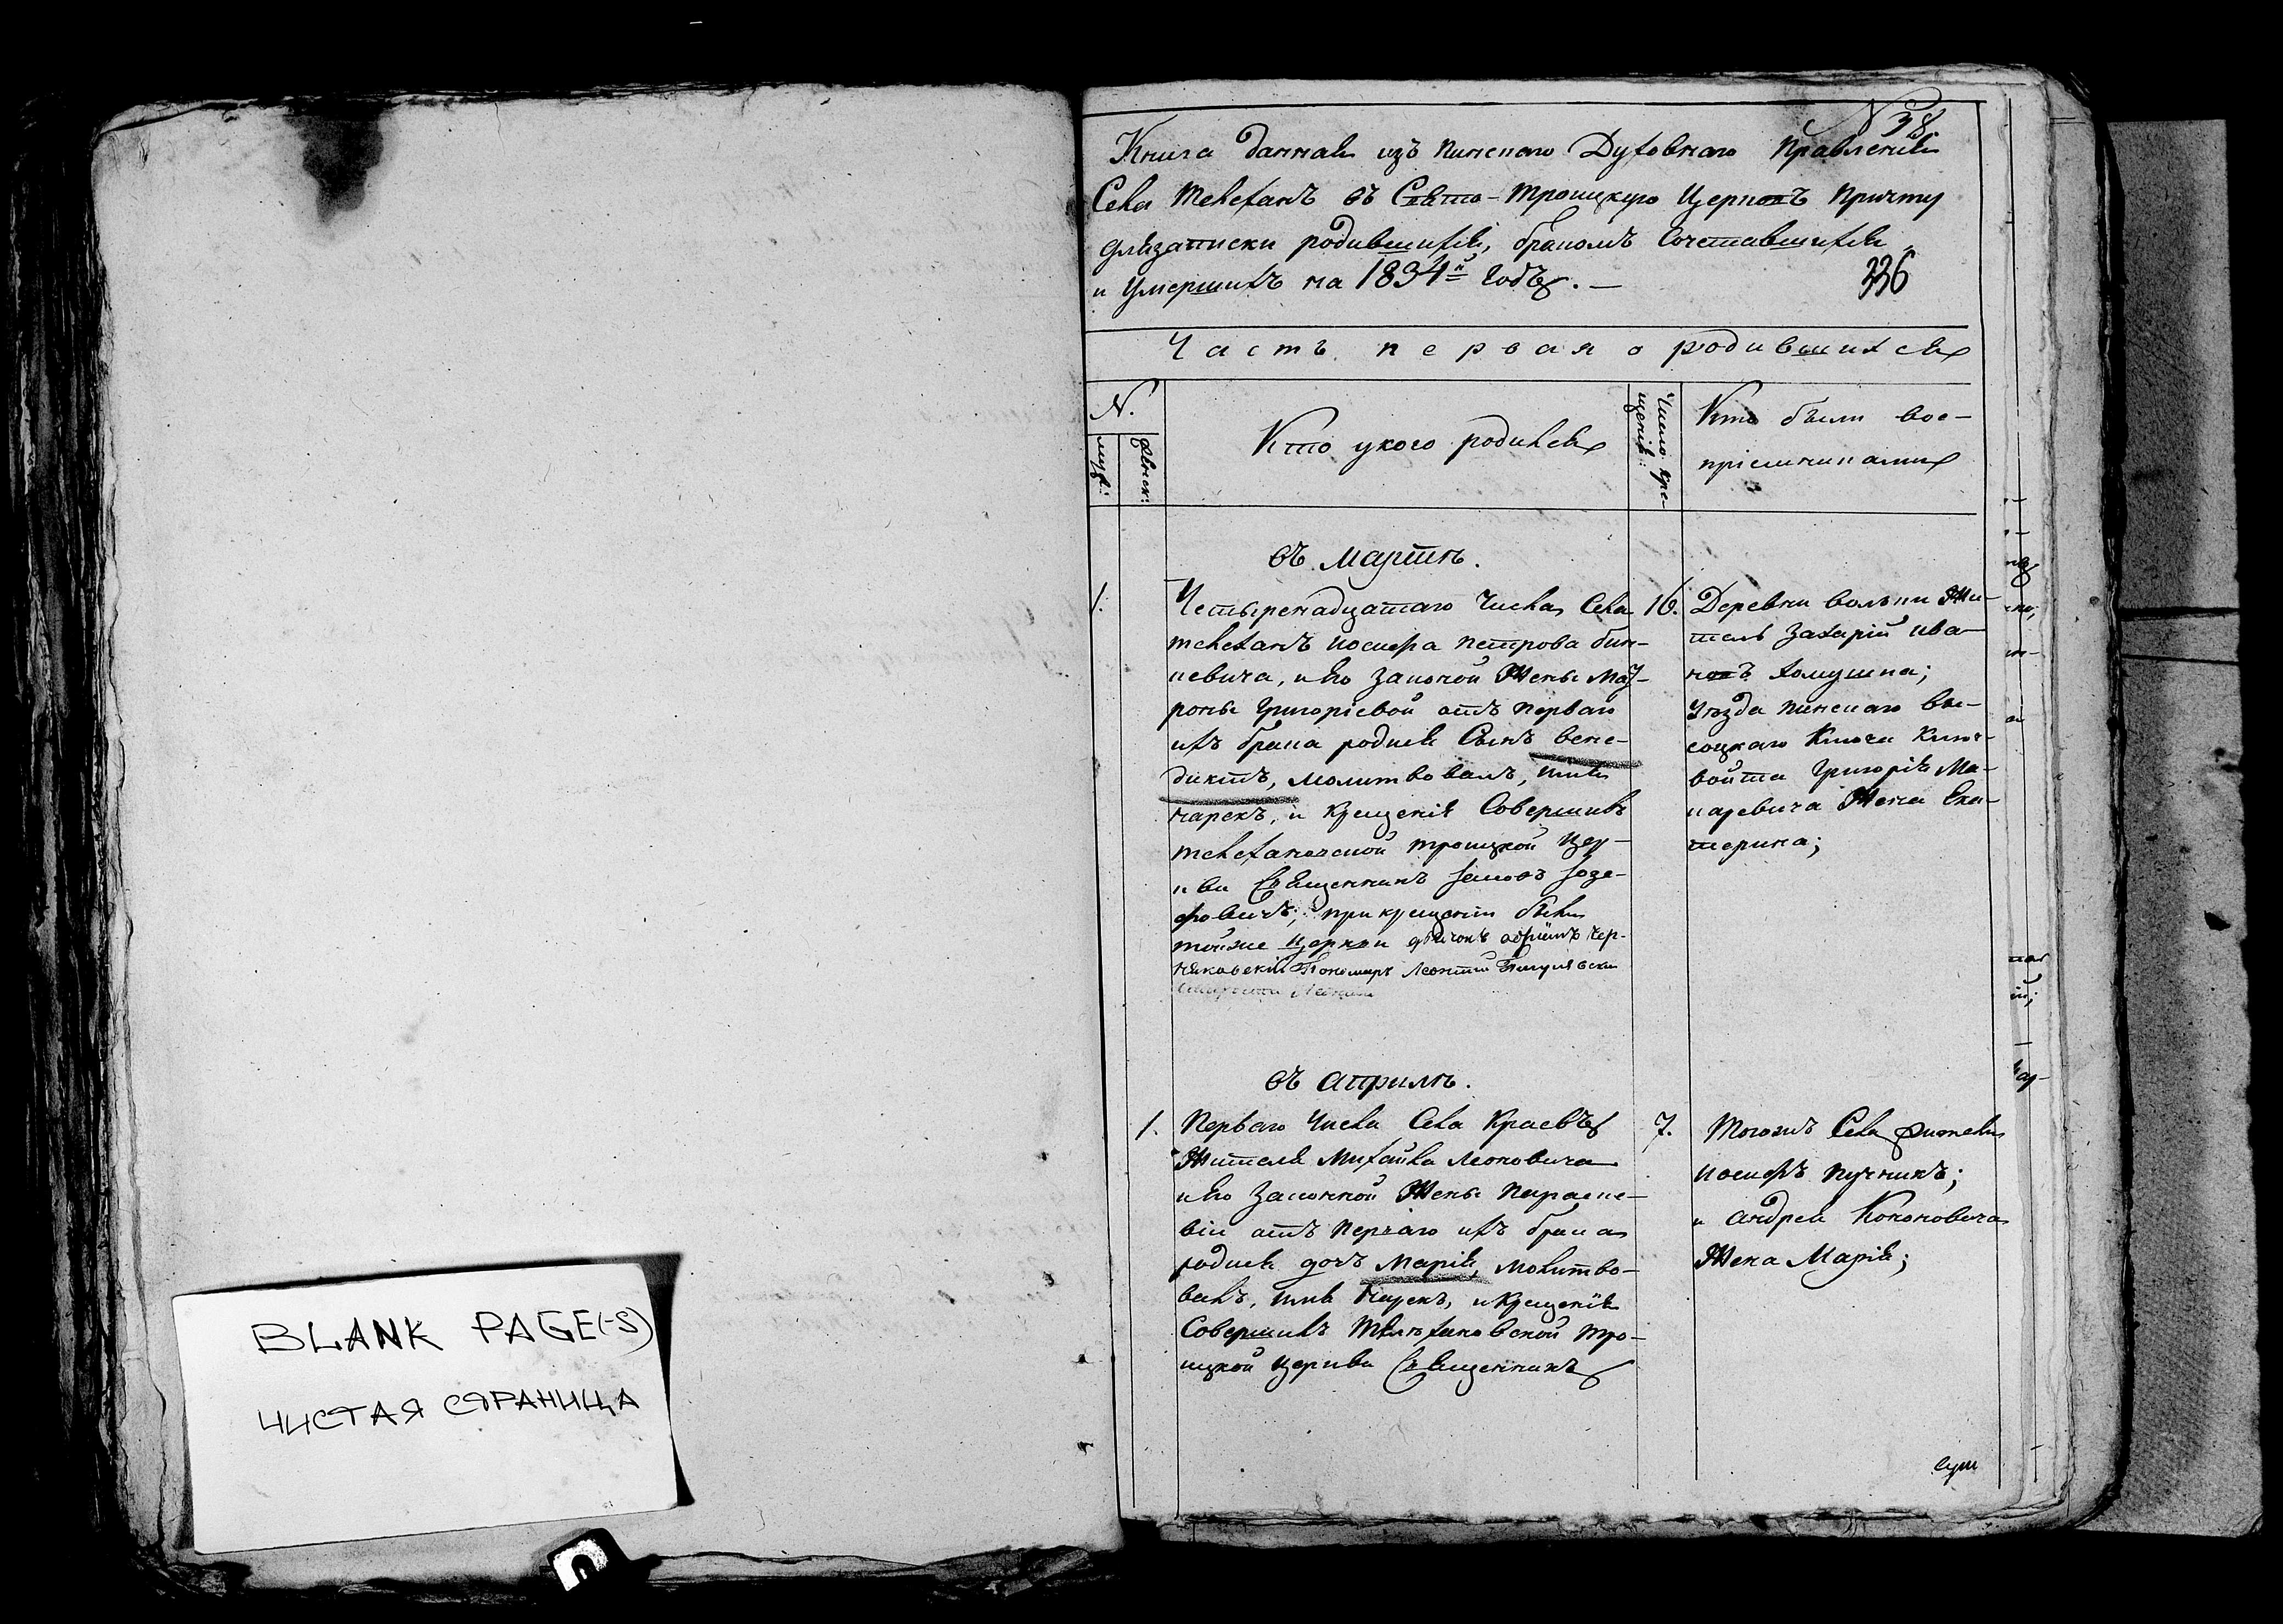 BLANK PAGE(-S)
ЧИСТАЯ СТРАНИЦА
N 38.
Книга данная изъ Пинскаго Духовнаго Правления
Села Телехан въ Свято-Троицкую Церковъ Причту
длязаписки родившихся, бракомъ Сочетавшихся
и Умершихъ на 1834й годъ. —
336
Часть первая о родившихся
N.
муж:
женск:
Кто укого родился
Число кре-
щенія:
Кто были вос-
пріемниками
въ Мартѣ.
1.
Четыренадцатаго Числа Села
телеханъ Иосифа Петрова бин-
кевича, иЕго Законой Жены Мат-
роны Григоріевой отъ перваго
ихъ брака родися Сынъ Вене-
диктъ, молитвовалъ, имя
нарекъ, и Крещенія Совершилъ
телеханской троицкой Цер-
кви Священникъ
фовичъ; при крещеніи были
тойже Церкви дьячокъ Чер-
няковскій Пономарь Леонтий
16.
Деревни вольки Жи-
тель Захарій ива-
новъ хомушка;
Уѣзда Пинскаго Вы-
соцкаго Ключа Ключ-
войта Григорія Ма-
каревича Жена Ека-
терина;
въ Априлѣ.
1.
Перваго Числа Села Краевъ
Жителя Михайла Леоновича
иЕго Законной Жены Параске-
віи отъ Перваго ихъ брака
родися дочъ Марія, молитво-
валъ, имя Нарекъ, иКрещенія
Совершилъ Телеханской тро-
ицкой Церкви Священникъ
7.
Тогожъ Села Жители
Иосифъ Пучникъ;
и Андрея Кононовича
Жена Марія;